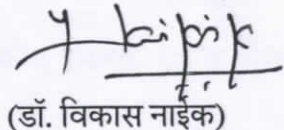 (डॉ. विकास नाईक)